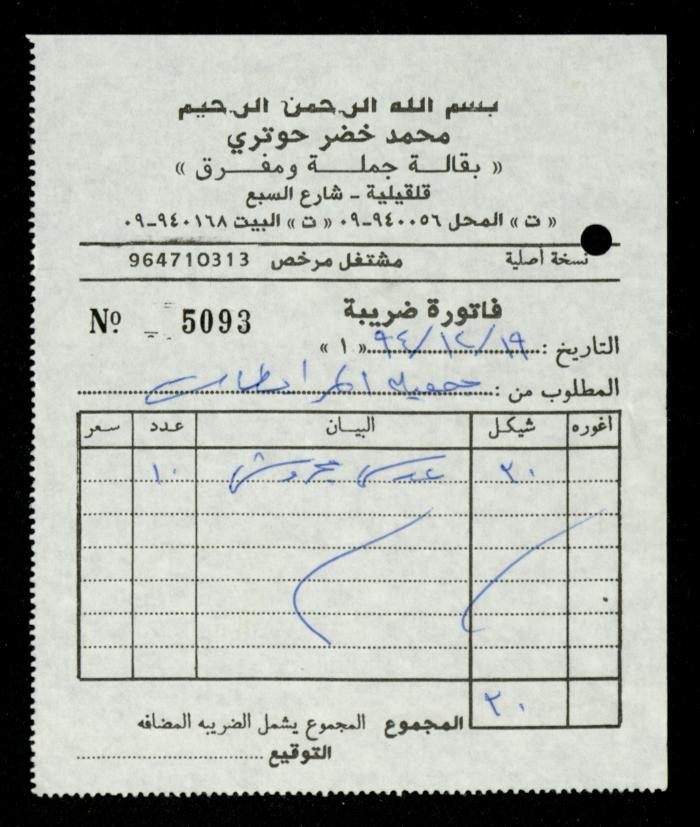 بسم الله الرحمن الرحيم
محمد خضر حوتري
« بقالة جملة ومفرق »
قلقيلية - شارع السبع
« ت » المحل ٩٤٠٠٥٦-٠٩ « ت » البيت ٩٤٠١٦٨-٠٩
نسخة أصلية مشتغل مرخص 964710313
فاتورة ضريبة
Nº 5093
التاريخ : ٩٤/١٢/١٩ « ١ »
المطلوب من : جمعية المرابطات
اغوره شيكل البيان عدد سعر
٢٠ عدس مجروش ١٠
٢٠
المجموع المجموع يشمل الضريبه المضافه
التوقيع